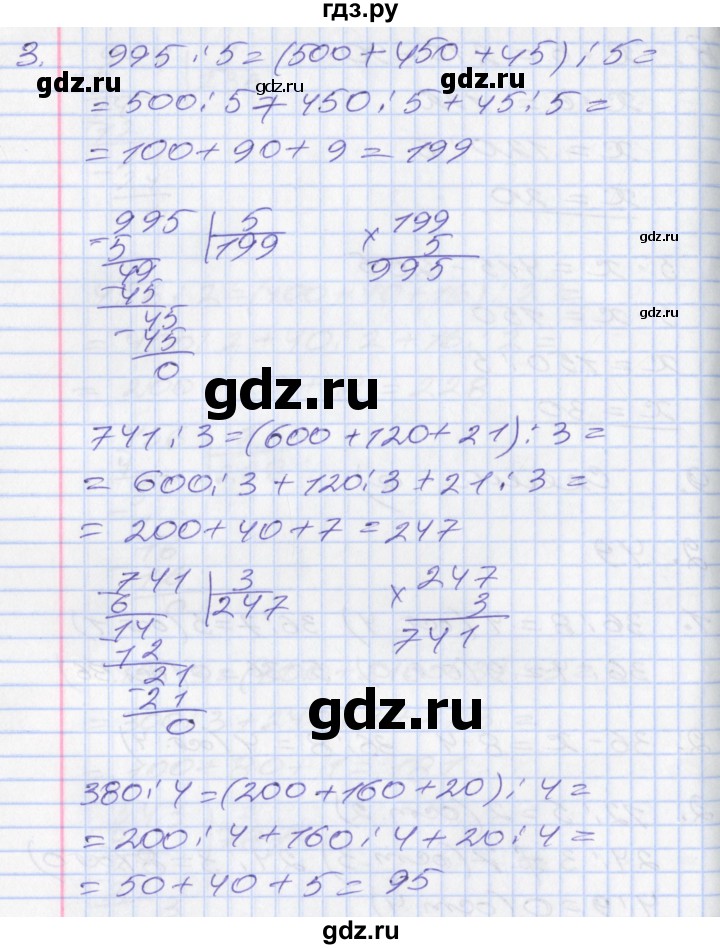 гдз.ру
3. 995 : 5 = (500 + 450 + 45) : 5 =
gdz.ru
gdz.ru
gdz.ru
= 500 : 5 + 450 : 5 + 45 : 5 =
= 100 + 90 + 9 = 199
995 | 5
199
- 5
49
- 45
45
- 45
0
× 199
5
995
gdz.ru
gdz.ru
gdz.ru
741 : 3 = (600 + 120 + 21) : 3 =
= 600 : 3 + 120 : 3 + 21 : 3 =
= 200 + 40 + 7 = 247
741 | 3
247
- 6
14
- 12
21
- 21
0
× 247
3
741
gdz.ru
380 : 4 = (200 + 160 + 20) : 4 =
= 200 : 4 + 160 : 4 + 20 : 4 =
= 50 + 40 + 5 = 95